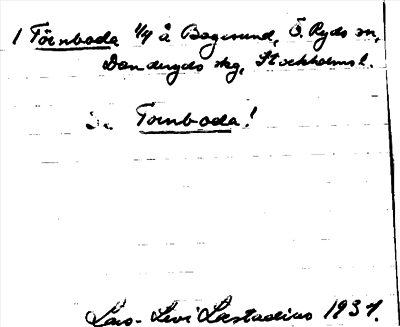 1 Törnboda 1/4 å Bogesund, Ö. Ryds sn,
Danderyds skg, Stockholms l.
Se Tornboda!
Lars-Levi Læstadius 1937.